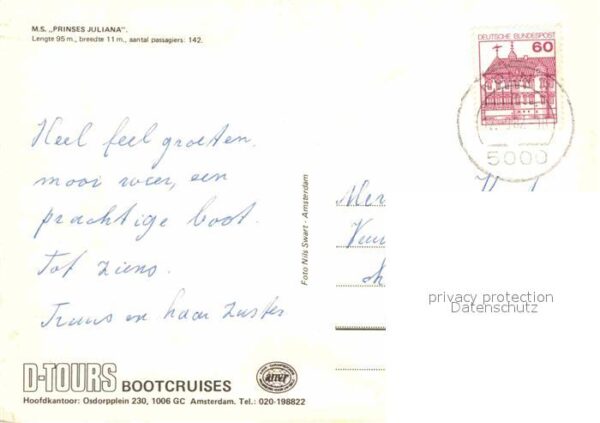 M.S. „PRINSES JULIANA".
Lengte 95 m., breedte 11 m., aantal passagiers: 142.
DEUTSCHE BUNDESPOST
60
5000
Heel feel groeten.
mooi weer, een
prachtige boot.
Tot ziens.
Truus en haar zuster
Foto Nils Swart - Amsterdam
privacy protection
Datenschutz
D-TOURS BOOTCRUISES
Hoofdkantoor: Osdorpplein 230, 1006 GC Amsterdam. Tel: 020-198822